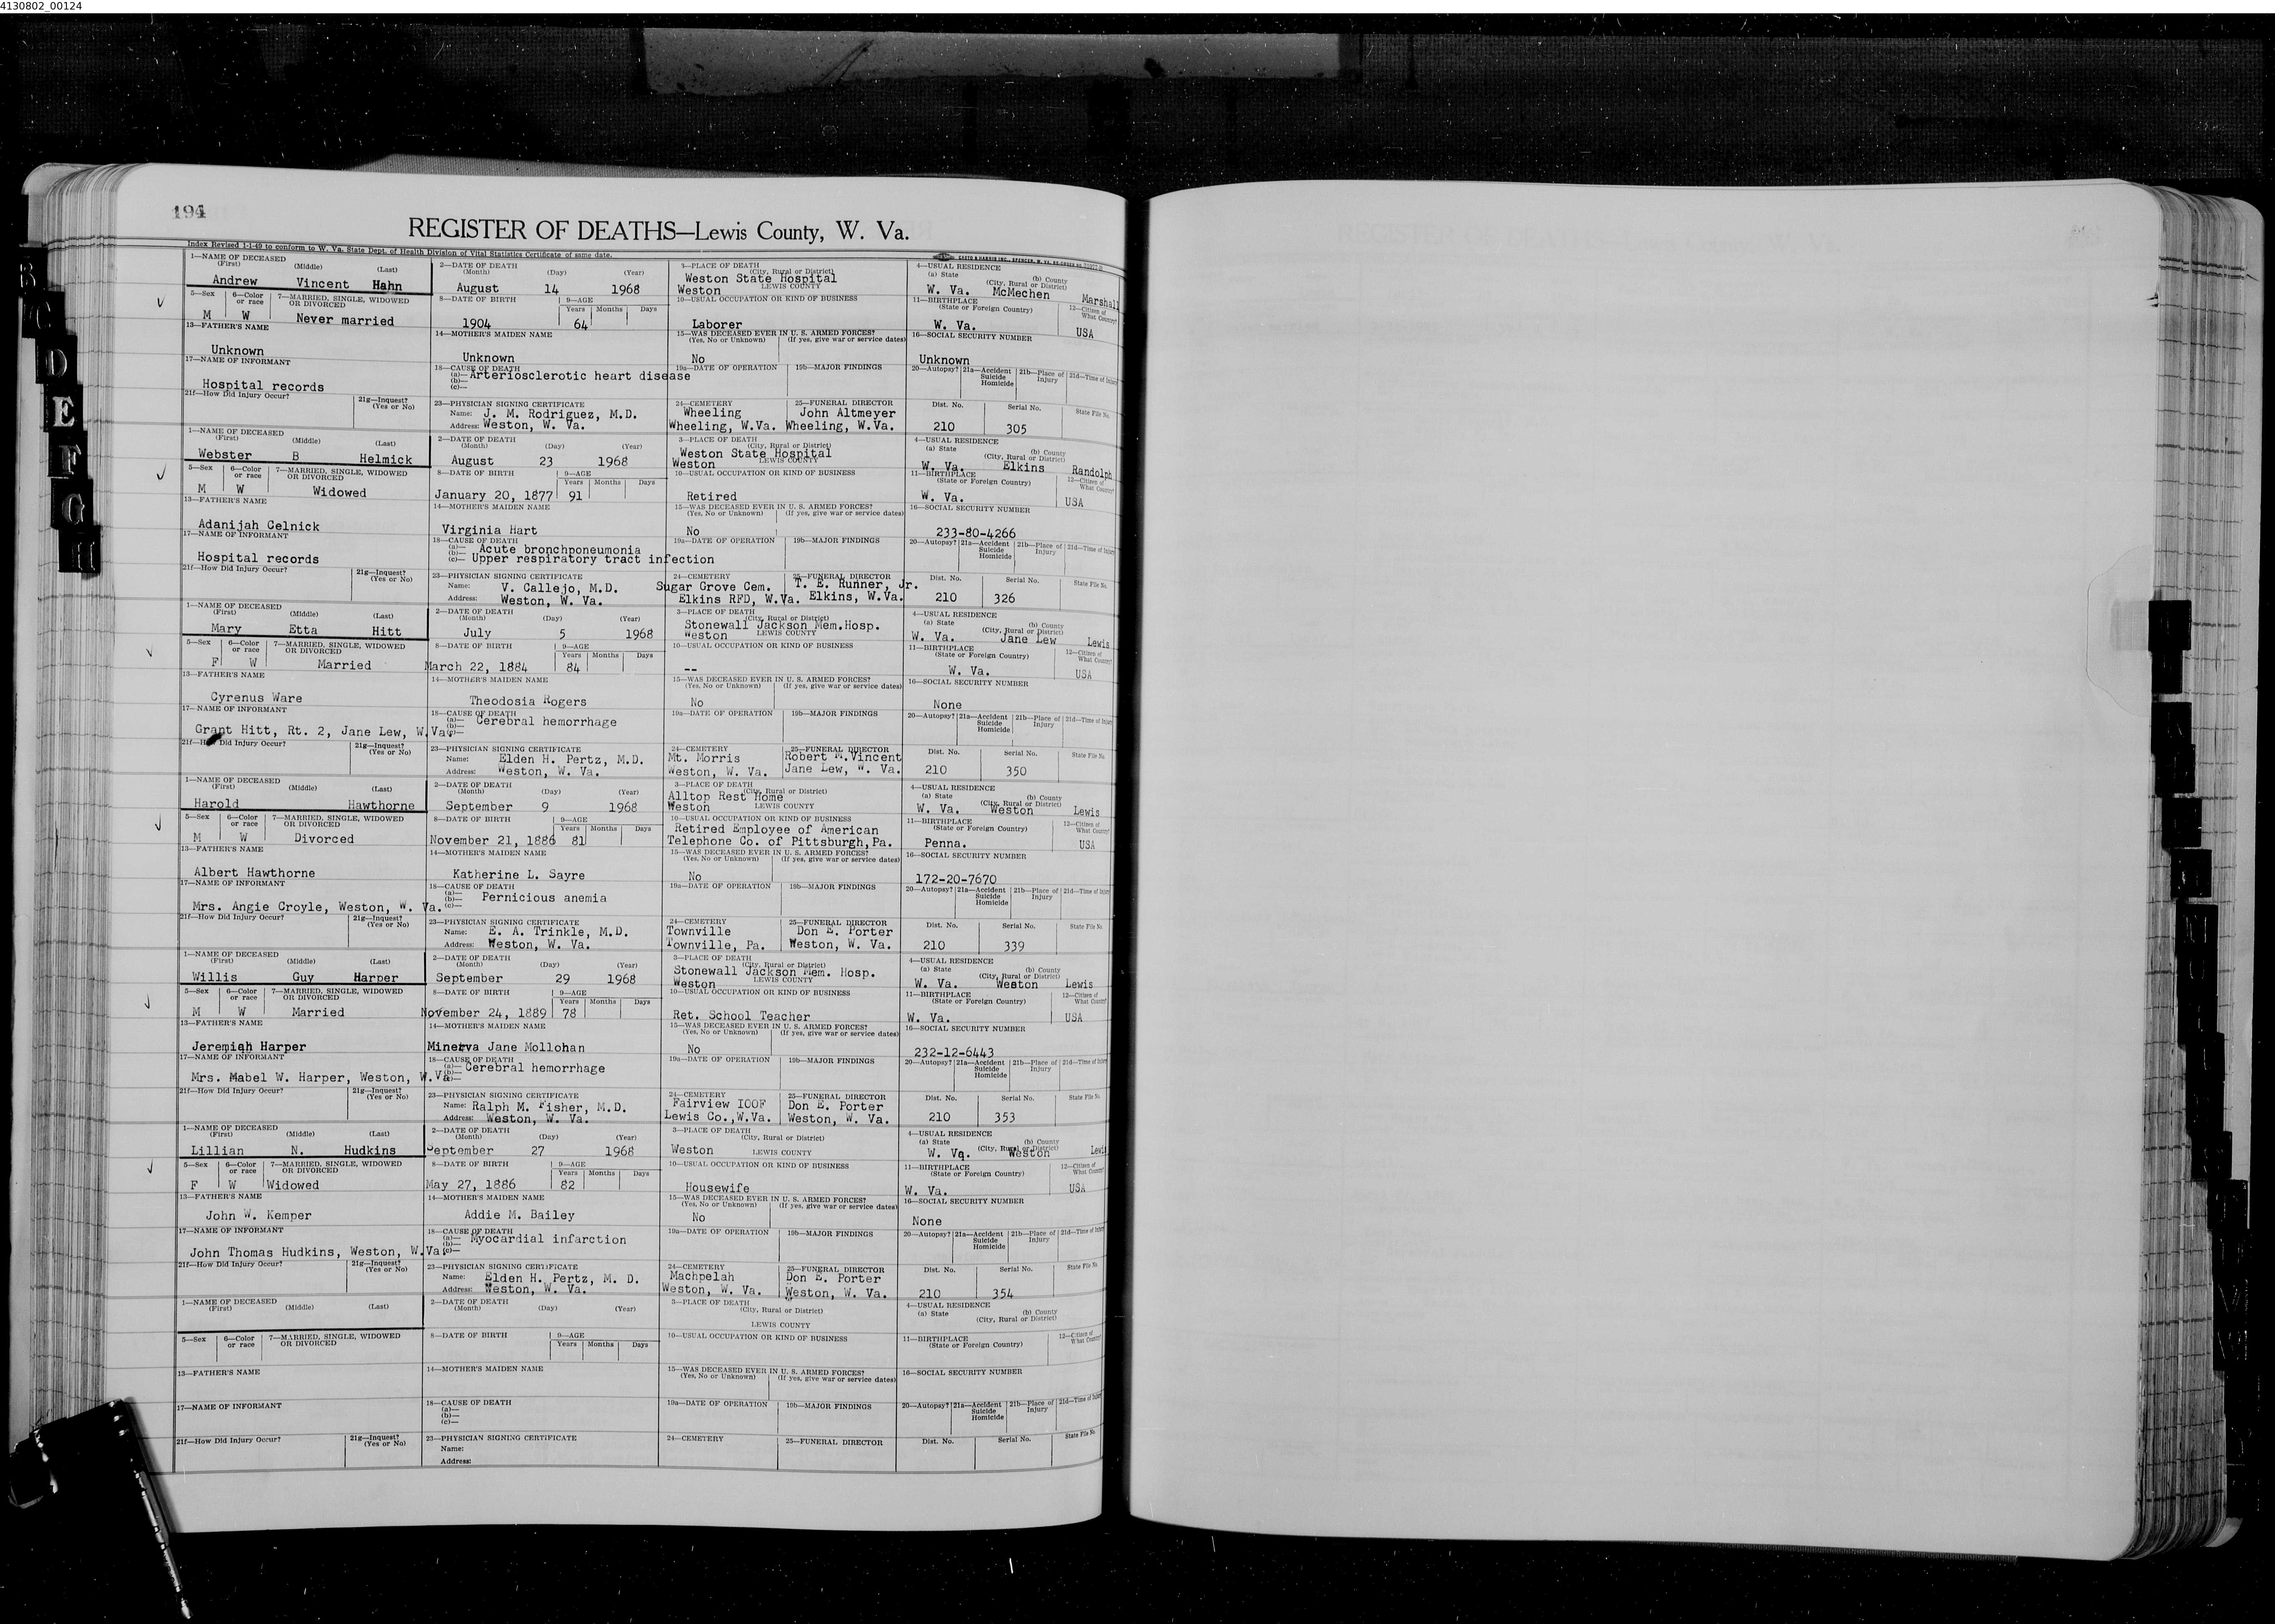 4130802_00124
194
REGISTER OF DEATHS—Lewis County, W. Va.
Index Revised 1-1-49 to conform to W. Va. State Dept. of Health Division of Vital Statistics Certificate of same date.
1—NAME OF DECEASED (First) (Middle) (Last) 2—DATE OF DEATH (Month) (Day) (Year) 3—PLACE OF DEATH (City, Rural or District) 4—USUAL RESIDENCE (a) State (City, Rural or District) (b) County
Andrew Vincent Hahn August 14 1968 Weston State Hospital Weston LEWIS COUNTY W. Va. McMechen Marshall
5—Sex 6—Color or race 7—MARRIED, SINGLE, WIDOWED OR DIVORCED 8—DATE OF BIRTH 9—AGE Years Months Days 10—USUAL OCCUPATION OR KIND OF BUSINESS 11—BIRTHPLACE (State or Foreign Country) 12—Citizen of What Country?
M W Never married 1904 64 Laborer W. Va. USA
13—FATHER'S NAME 14—MOTHER'S MAIDEN NAME 15—WAS DECEASED EVER IN U. S. ARMED FORCES? (Yes, No or Unknown) (If yes, give war or service dates) 16—SOCIAL SECURITY NUMBER
Unknown Unknown No Unknown
17—NAME OF INFORMANT 18—CAUSE OF DEATH 19a—DATE OF OPERATION 19b—MAJOR FINDINGS 20—Autopsy? 21a—Accident Suicide Homicide 21b—Place of Injury 21d—Time of Injury
Hospital records (a)— Arteriosclerotic heart disease (b)— (c)—
21f—How Did Injury Occur? 21g—Inquest? (Yes or No) 23—PHYSICIAN SIGNING CERTIFICATE 24—CEMETERY 25—FUNERAL DIRECTOR Dist. No. Serial No. State File No.
Name: J. M. Rodriguez, M.D. Wheeling John Altmeyer
Address: Weston, W. Va. Wheeling, W.Va. Wheeling, W.Va. 210 305
1—NAME OF DECEASED (First) (Middle) (Last) 2—DATE OF DEATH (Month) (Day) (Year) 3—PLACE OF DEATH (City, Rural or District) 4—USUAL RESIDENCE (a) State (City, Rural or District) (b) County
Webster B Helmick August 23 1968 Weston State Hospital Weston LEWIS COUNTY W. Va. Elkins Randolph
5—Sex 6—Color or race 7—MARRIED, SINGLE, WIDOWED OR DIVORCED 8—DATE OF BIRTH 9—AGE Years Months Days 10—USUAL OCCUPATION OR KIND OF BUSINESS 11—BIRTHPLACE (State or Foreign Country) 12—Citizen of What Country?
M W Widowed January 20, 1877 91 Retired W. Va. USA
13—FATHER'S NAME 14—MOTHER'S MAIDEN NAME 15—WAS DECEASED EVER IN U. S. ARMED FORCES? (Yes, No or Unknown) (If yes, give war or service dates) 16—SOCIAL SECURITY NUMBER
Adanijah Celnick Virginia Hart No 233-80-4266
17—NAME OF INFORMANT 18—CAUSE OF DEATH 19a—DATE OF OPERATION 19b—MAJOR FINDINGS 20—Autopsy? 21a—Accident Suicide Homicide 21b—Place of Injury 21d—Time of Injury
Hospital records (a)— Acute bronchponeumonia (b)— (c)— Upper respiratory tract infection
21f—How Did Injury Occur? 21g—Inquest? (Yes or No) 23—PHYSICIAN SIGNING CERTIFICATE 24—CEMETERY 25—FUNERAL DIRECTOR Dist. No. Serial No. State File No.
Name: V. Callejo, M.D. Sugar Grove Cem. T. E. Runner, Jr.
Address: Weston, W. Va. Elkins RFD, W.Va. Elkins, W.Va. 210 326
1—NAME OF DECEASED (First) (Middle) (Last) 2—DATE OF DEATH (Month) (Day) (Year) 3—PLACE OF DEATH (City, Rural or District) 4—USUAL RESIDENCE (a) State (City, Rural or District) (b) County
Mary Etta Hitt July 5 1968 Stonewall Jackson Mem.Hosp. Weston LEWIS COUNTY W. Va. Jane Lew Lewis
5—Sex 6—Color or race 7—MARRIED, SINGLE, WIDOWED OR DIVORCED 8—DATE OF BIRTH 9—AGE Years Months Days 10—USUAL OCCUPATION OR KIND OF BUSINESS 11—BIRTHPLACE (State or Foreign Country) 12—Citizen of What Country?
F W Married March 22, 1884 84 -- W. Va. USA
13—FATHER'S NAME 14—MOTHER'S MAIDEN NAME 15—WAS DECEASED EVER IN U. S. ARMED FORCES? (Yes, No or Unknown) (If yes, give war or service dates) 16—SOCIAL SECURITY NUMBER
Cyrenus Ware Theodosia Rogers No None
17—NAME OF INFORMANT 18—CAUSE OF DEATH 19a—DATE OF OPERATION 19b—MAJOR FINDINGS 20—Autopsy? 21a—Accident Suicide Homicide 21b—Place of Injury 21d—Time of Injury
Grant Hitt, Rt. 2, Jane Lew, W.Va. (a)— Cerebral hemorrhage (b)— (c)—
21f—How Did Injury Occur? 21g—Inquest? (Yes or No) 23—PHYSICIAN SIGNING CERTIFICATE 24—CEMETERY 25—FUNERAL DIRECTOR Dist. No. Serial No. State File No.
Name: Elden H. Pertz, M.D. Mt. Morris Robert M.Vincent
Address: Weston, W. Va. Weston, W. Va. Jane Lew, W. Va. 210 350
1—NAME OF DECEASED (First) (Middle) (Last) 2—DATE OF DEATH (Month) (Day) (Year) 3—PLACE OF DEATH (City, Rural or District) 4—USUAL RESIDENCE (a) State (City, Rural or District) (b) County
Harold Hawthorne September 9 1968 Alltop Rest Home Weston LEWIS COUNTY W. Va. Weston Lewis
5—Sex 6—Color or race 7—MARRIED, SINGLE, WIDOWED OR DIVORCED 8—DATE OF BIRTH 9—AGE Years Months Days 10—USUAL OCCUPATION OR KIND OF BUSINESS 11—BIRTHPLACE (State or Foreign Country) 12—Citizen of What Country?
M W Divorced November 21, 1886 81 Retired Employee of American Telephone Co. of Pittsburgh,Pa. Penna. USA
13—FATHER'S NAME 14—MOTHER'S MAIDEN NAME 15—WAS DECEASED EVER IN U. S. ARMED FORCES? (Yes, No or Unknown) (If yes, give war or service dates) 16—SOCIAL SECURITY NUMBER
Albert Hawthorne Katherine L. Sayre No 172-20-7670
17—NAME OF INFORMANT 18—CAUSE OF DEATH 19a—DATE OF OPERATION 19b—MAJOR FINDINGS 20—Autopsy? 21a—Accident Suicide Homicide 21b—Place of Injury 21d—Time of Injury
Mrs. Angie Croyle, Weston, W. Va. (a)— (b)— Pernicious anemia (c)—
21f—How Did Injury Occur? 21g—Inquest? (Yes or No) 23—PHYSICIAN SIGNING CERTIFICATE 24—CEMETERY 25—FUNERAL DIRECTOR Dist. No. Serial No. State File No.
Name: E. A. Trinkle, M.D. Townville Don E. Porter
Address: Weston, W. Va. Townville, Pa. Weston, W. Va. 210 339
1—NAME OF DECEASED (First) (Middle) (Last) 2—DATE OF DEATH (Month) (Day) (Year) 3—PLACE OF DEATH (City, Rural or District) 4—USUAL RESIDENCE (a) State (City, Rural or District) (b) County
Willis Guy Harper September 29 1968 Stonewall Jackson Mem. Hosp. Weston LEWIS COUNTY W. Va. Weston Lewis
5—Sex 6—Color or race 7—MARRIED, SINGLE, WIDOWED OR DIVORCED 8—DATE OF BIRTH 9—AGE Years Months Days 10—USUAL OCCUPATION OR KIND OF BUSINESS 11—BIRTHPLACE (State or Foreign Country) 12—Citizen of What Country?
M W Married November 24, 1889 78 Ret. School Teacher W. Va. USA
13—FATHER'S NAME 14—MOTHER'S MAIDEN NAME 15—WAS DECEASED EVER IN U. S. ARMED FORCES? (Yes, No or Unknown) (If yes, give war or service dates) 16—SOCIAL SECURITY NUMBER
Jeremiah Harper Minerva Jane Mollohan No 232-12-6443
17—NAME OF INFORMANT 18—CAUSE OF DEATH 19a—DATE OF OPERATION 19b—MAJOR FINDINGS 20—Autopsy? 21a—Accident Suicide Homicide 21b—Place of Injury 21d—Time of Injury
Mrs. Mabel W. Harper, Weston, W.Va. (a)— Cerebral hemorrhage (b)— (c)—
21f—How Did Injury Occur? 21g—Inquest? (Yes or No) 23—PHYSICIAN SIGNING CERTIFICATE 24—CEMETERY 25—FUNERAL DIRECTOR Dist. No. Serial No. State File No.
Name: Ralph M. Fisher, M.D. Fairview IOOF Don E. Porter
Address: Weston, W. Va. Lewis Co.,W.Va. Weston, W. Va. 210 353
1—NAME OF DECEASED (First) (Middle) (Last) 2—DATE OF DEATH (Month) (Day) (Year) 3—PLACE OF DEATH (City, Rural or District) 4—USUAL RESIDENCE (a) State (City, Rural or District) (b) County
Lillian N. Hudkins September 27 1968 Weston LEWIS COUNTY W. Vq. Weston Lewi
5—Sex 6—Color or race 7—MARRIED, SINGLE, WIDOWED OR DIVORCED 8—DATE OF BIRTH 9—AGE Years Months Days 10—USUAL OCCUPATION OR KIND OF BUSINESS 11—BIRTHPLACE (State or Foreign Country) 12—Citizen of What Country?
F W Widowed May 27, 1886 82 Housewife W. Va. USA
13—FATHER'S NAME 14—MOTHER'S MAIDEN NAME 15—WAS DECEASED EVER IN U. S. ARMED FORCES? (Yes, No or Unknown) (If yes, give war or service dates) 16—SOCIAL SECURITY NUMBER
John W. Kemper Addie M. Bailey No None
17—NAME OF INFORMANT 18—CAUSE OF DEATH 19a—DATE OF OPERATION 19b—MAJOR FINDINGS 20—Autopsy? 21a—Accident Suicide Homicide 21b—Place of Injury 21d—Time of Injury
John Thomas Hudkins, Weston, W.Va. (a)— Myocardial infarction (b)— (c)—
21f—How Did Injury Occur? 21g—Inquest? (Yes or No) 23—PHYSICIAN SIGNING CERTIFICATE 24—CEMETERY 25—FUNERAL DIRECTOR Dist. No. Serial No. State File No.
Name: Elden H. Pertz, M. D. Machpelah Don E. Porter
Address: Weston, W. Va. Weston, W. Va. Weston, W. Va. 210 354
1—NAME OF DECEASED (First) (Middle) (Last) 2—DATE OF DEATH (Month) (Day) (Year) 3—PLACE OF DEATH (City, Rural or District) LEWIS COUNTY 4—USUAL RESIDENCE (a) State (City, Rural or District) (b) County
5—Sex 6—Color or race 7—MARRIED, SINGLE, WIDOWED OR DIVORCED 8—DATE OF BIRTH 9—AGE Years Months Days 10—USUAL OCCUPATION OR KIND OF BUSINESS 11—BIRTHPLACE (State or Foreign Country) 12—Citizen of What Country?
13—FATHER'S NAME 14—MOTHER'S MAIDEN NAME 15—WAS DECEASED EVER IN U. S. ARMED FORCES? (Yes, No or Unknown) (If yes, give war or service dates) 16—SOCIAL SECURITY NUMBER
17—NAME OF INFORMANT 18—CAUSE OF DEATH (a)— (b)— (c)— 19a—DATE OF OPERATION 19b—MAJOR FINDINGS 20—Autopsy? 21a—Accident Suicide Homicide 21b—Place of Injury 21d—Time of Injury
21f—How Did Injury Occur? 21g—Inquest? (Yes or No) 23—PHYSICIAN SIGNING CERTIFICATE 24—CEMETERY 25—FUNERAL DIRECTOR Dist. No. Serial No. State File No.
Name:
Address:
B
C
D
E
F
G
H